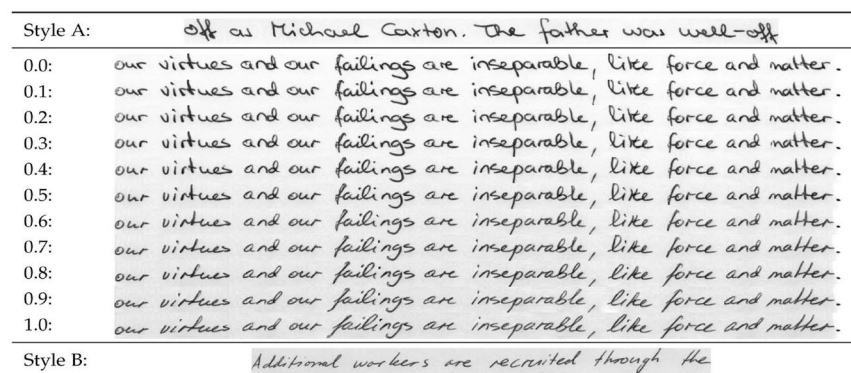 Style A: off as Michael Caxton. The father was well-off
0.0: our virtues and our failings are inseparable, like force and matter.
0.1: our virtues and our failings are inseparable, like force and matter.
0.2: our virtues and our failings are inseparable, like force and matter.
0.3: our virtues and our failings are inseparable, like force and matter.
0.4: our virtues and our failings are inseparable, like force and matter.
0.5: our virtues and our failings are inseparable, like force and matter.
0.6: our virtues and our failings are inseparable, like force and matter.
0.7: our virtues and our failings are inseparable, like force and matter.
0.8: our virtues and our failings are inseparable, like force and matter.
0.9: our virtues and our failings are inseparable, like force and matter.
1.0: our virtues and our failings are inseparable, like force and matter.
Style B: Additional workers are recruited through the